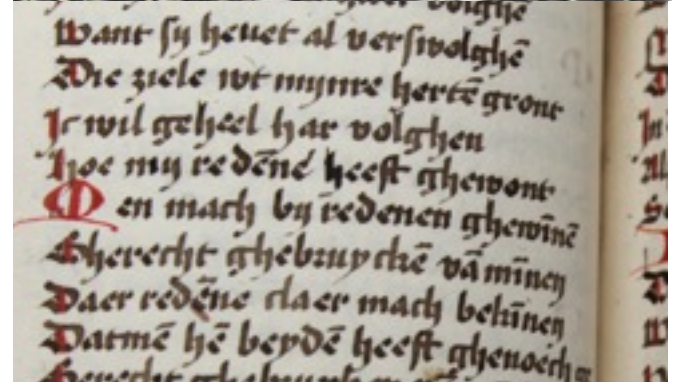 volghē
Want sy heuet al verswolghē
Die ziele wt mynre hertē gront
Ic wil geheel har volghen
hoe my redēne heeft ghewont
Men mach by redenen ghewīnē
Gherecht ghebruyckē vā mīnen
Daer redēne claer mach bekīnen
Datmē hē beydē heeft ghenoech
Gherecht